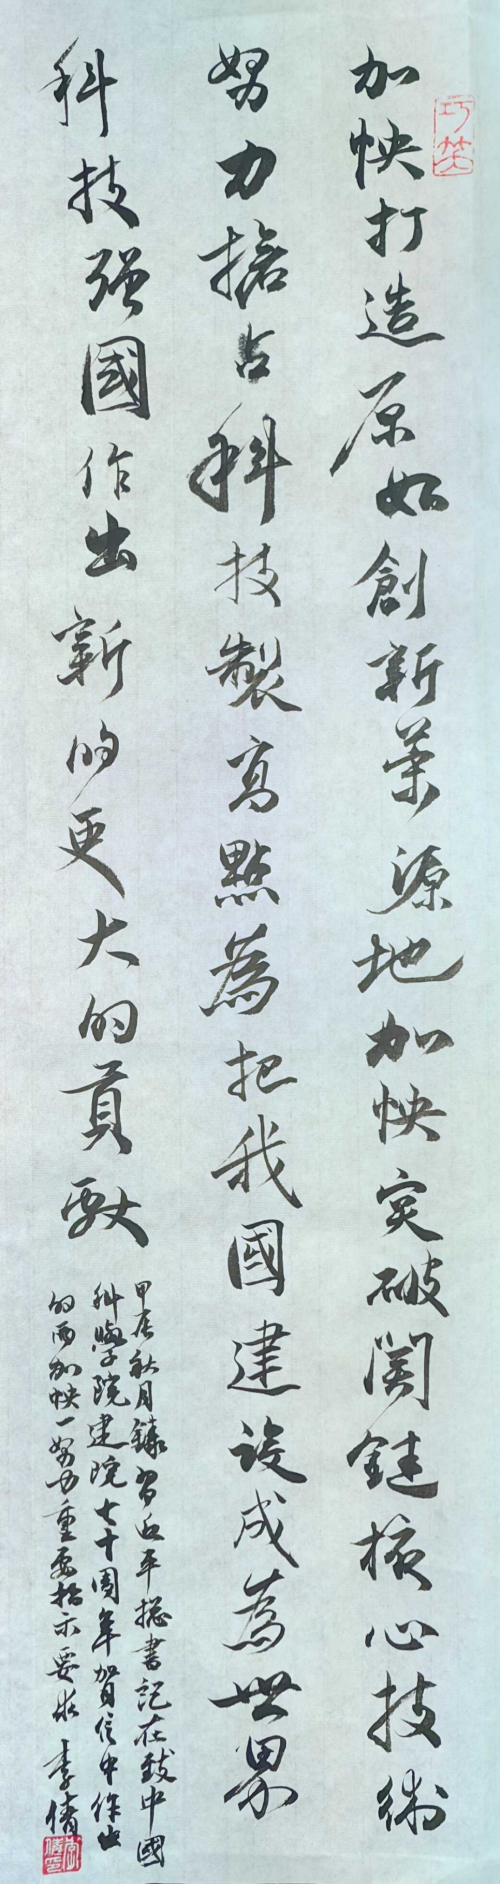 加快打造原始創新策源地加快突破関鍵核心技術
努力搶占科技製高點為把我國建設成為世界
科技強國作出新的更大的貢獻
甲辰秋月録習近平總書記在致中國
科學院建院七十周年賀信中作出
的两加快一努力重要指示要求 李倩